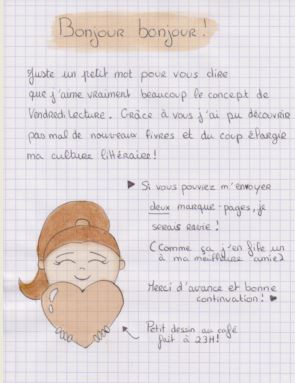 Bonjour bonjour!
Juste un petit mot pour vous dire
que j'aime vraiment beaucoup le concept de
VendrediLecture. Grâce à vous j'ai pu découvrir
pas mal de nouveaux livres et du coup élargir
ma culture littéraire!
Si vous pouviez m'envoyer
deux marque-pages, je
serais ravie!
(Comme ça j'en file un
à ma meilleure amie)
Merci d'avance et bonne
continuation!
Petit dessin au café
fait à 23H!